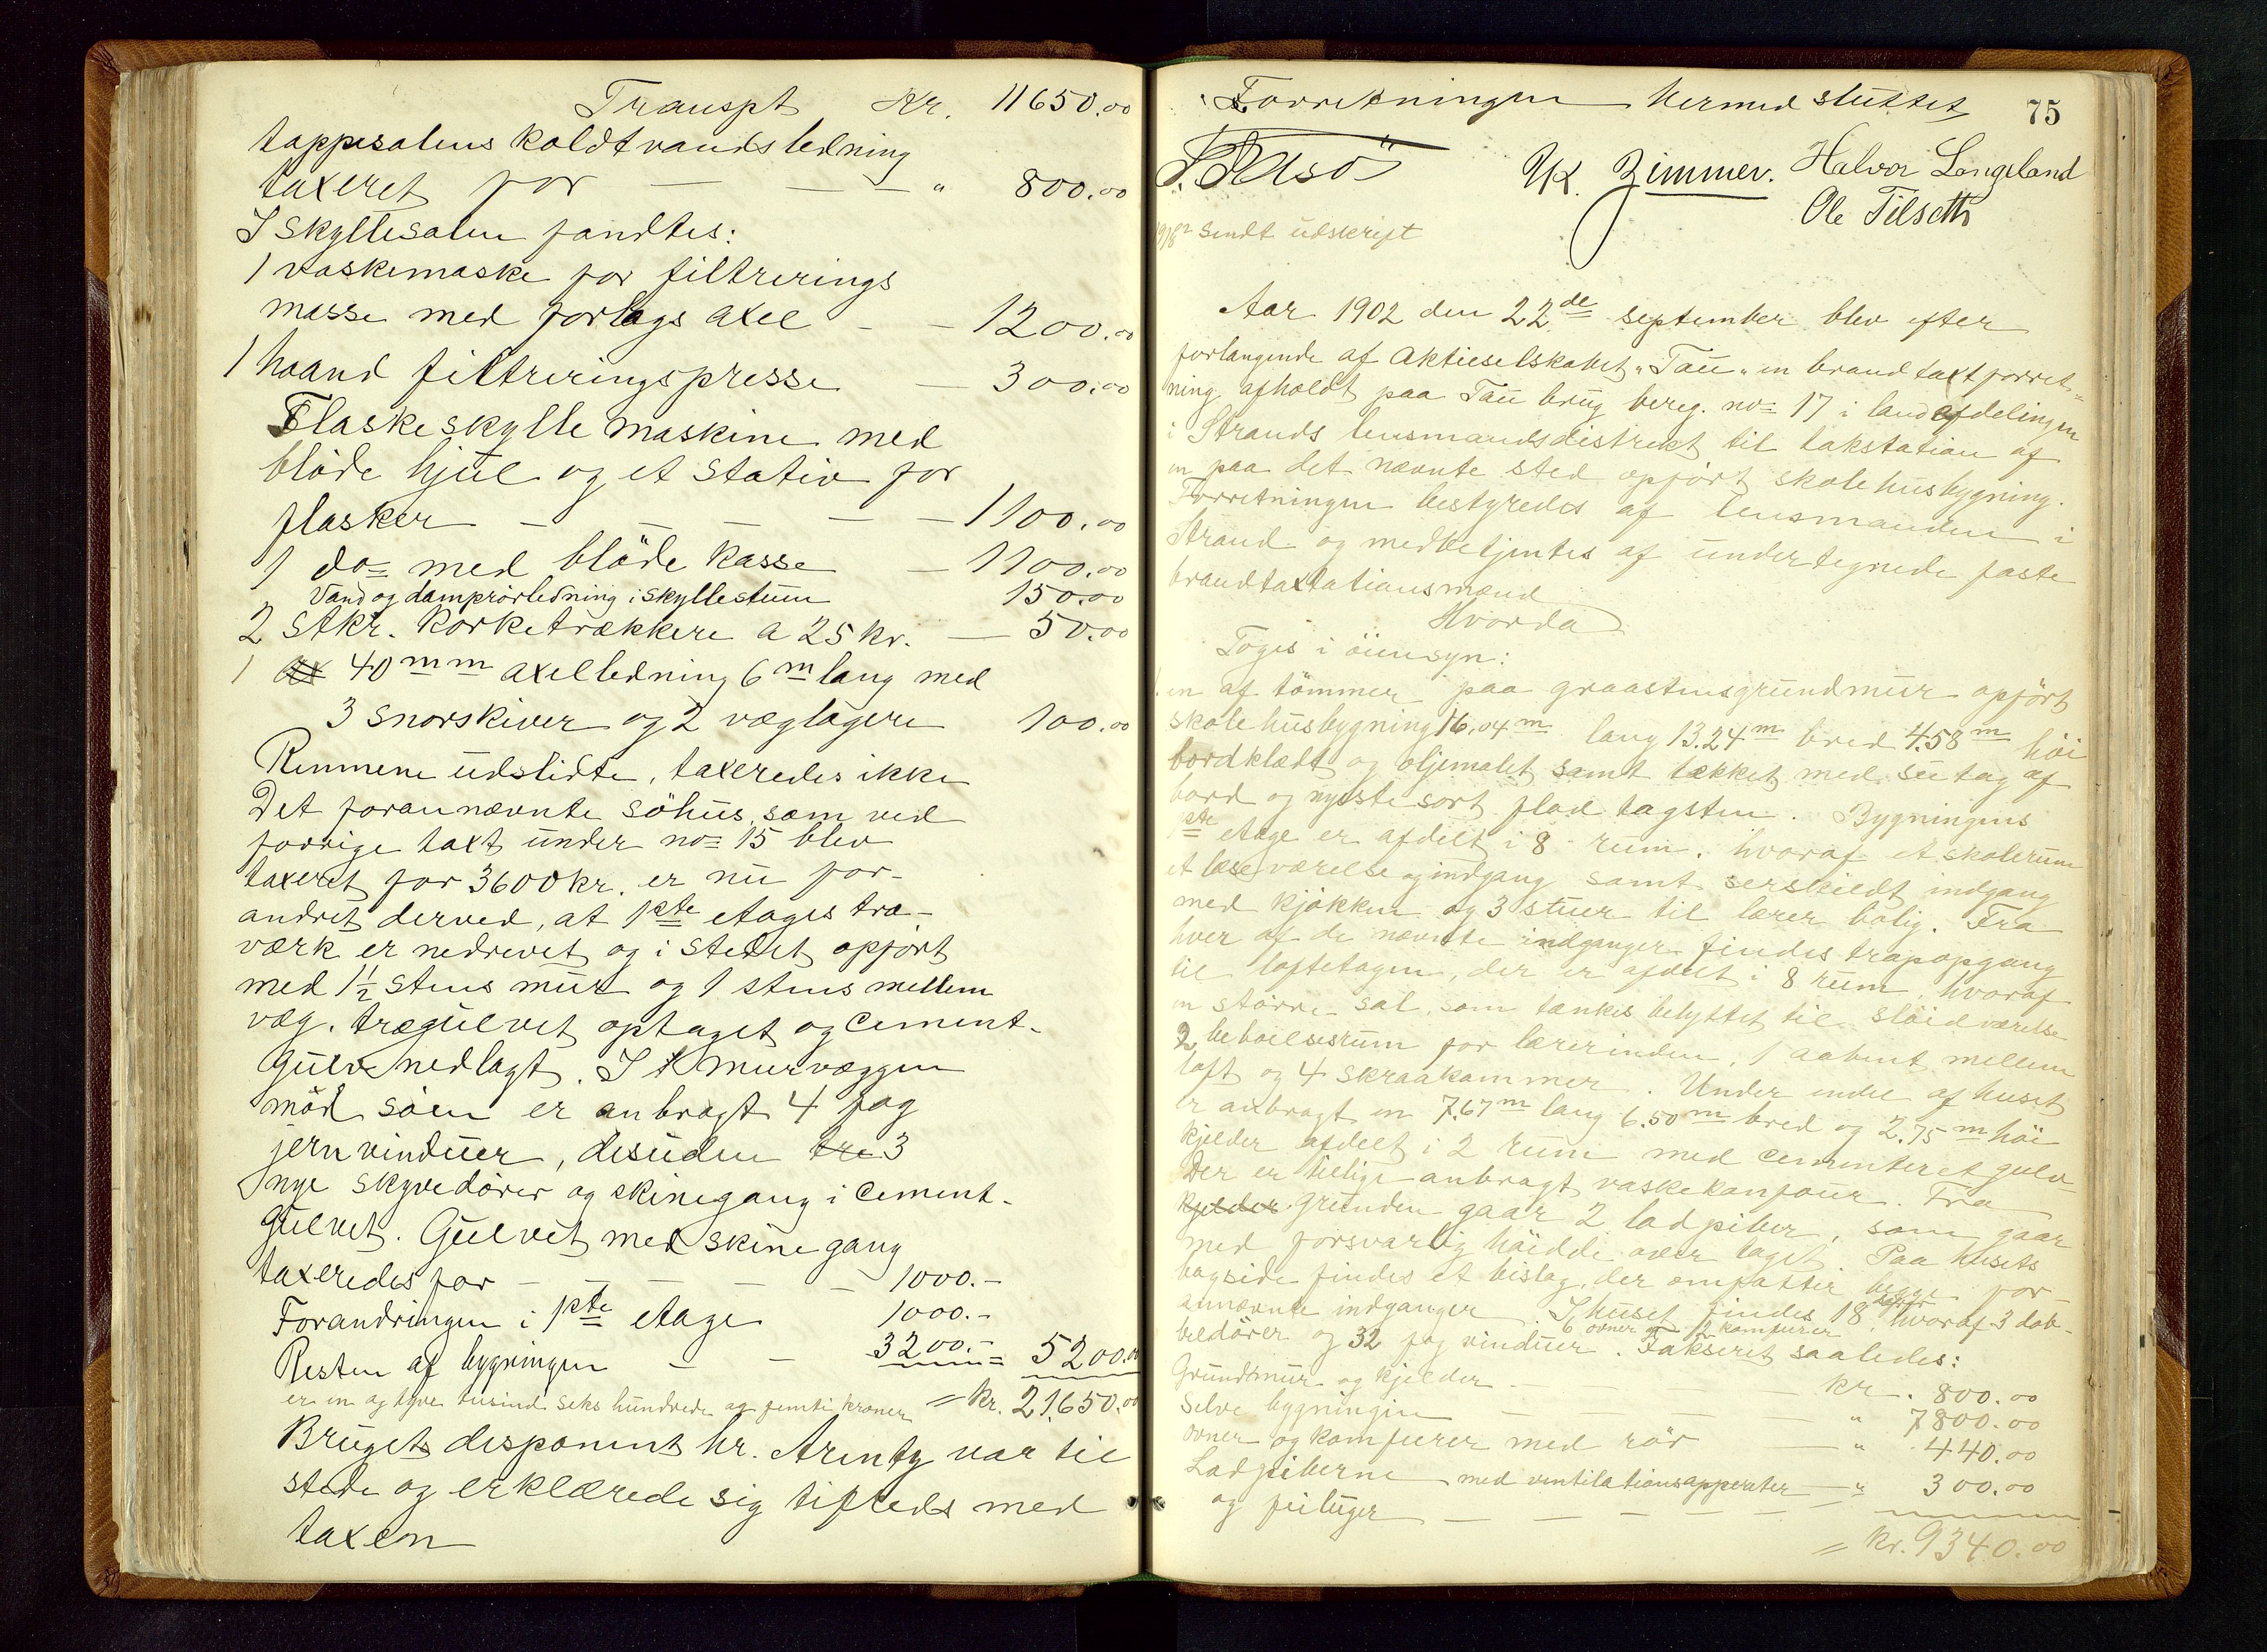 Transpt Kr. 11650.00
tappesalens koldtvandsledning
taxeret for — — — " 800.00
I skyllesalen fandtes:
1 vaskemaske for filtrerings
masse med forlags axel - - 1200.00
1 haand filtreringspresse — 300.00
Flaskeskylle maskine med
blöde hjul og et stativ for
flasker — — — — — 1100.00
1 do= med blöde kasse — 1100.00
Vand og damprörledning i skyllestum 150.00
2 stkr. korketrækkere a 25 kr. — 50.00
1 40 mm axelledning 6 m lang med
3 snorskiver og 2 væglagere 100.00
Remmene udslidte, taxeredes ikke
Det forannævnte söhus, som ved
forrige taxt under no= 15 blev
taxeret for 3600 kr. er nu for-
andret derved, at 1ste etages træ-
værk er nedrevet og i stedet opfört
med 1½ stens mur og 1 stens mellem
væg. trægulvet optaget og cement-
gulv nedlagt. I murvæggen
mod söen er anbragt 4 fag
jernvinduer, desuden tre 3
nye skyvedörer og skinegang i cement-
gulvet. Gulvet med skinegang
taxeredes for — — — — — 1000.-
Forandringen i 1ste etage 1000.-
Resten af bygningen — — 3200.- = 5200.00
er en og tyve tusind seks hundrede og femti kroner = kr. 21,650.00
Brugets disponent hr. Arentz var til
stede og erklærede sig tilfreds med
taxen
Forretningen hermed sluttet
75
K. Zimmer. Halvor Langeland
Ole Tilseth
sendt udskrift
Aar 1902 den 22de september blev efter
forlangende af Aktieselskabet "Tau" en brandtaxtforret-
ning afholdt paa Tau brug bereg. no= 17 i landafdelingen
i Strands lensmandsdistrikt til takstation af
en paa det nævnte sted opfört skolehusbygning.
Forretningen bestyredes af lensmanden i
Strand og medbetjentes af undertegnede faste
brandtaxtationsmænd
Hvorda
Toges i öiensyn:
1. en af tömmer paa graastensgrundmur opfört
skolehusbygning 16,04 m lang 13.24 m bred 4.58 m höi
bordklædt og oljemalet samt tækket med su tag af
bord og nyeste sort flad tagsten. Bygningens
1ste etage er afdelt i 8 rum, hvoraf et skolerum
et læseværelse og indgang samt serskildt indgang
med kjökken og 3 stuer til lærer bolig. Fra
hver af de nævnte indganger findes trapopgang
til loftetagen, der er afdelt i 8 rum, hvoraf
en större sal, som tænkes belyttet til slöidværelse
2 beboelsesrum for lærerinden, 1 aabent mellem
loft og 4 skraakammer. Under endel af huset
er anbragt en 7.67 m lang 6.50 m bred og 2.75 m höi
kjelder afdelt i 2 rum med cementeret gulv
Der er tillige anbragt vaskekomfour. Fra
kjelder grunden gaar 2 ladpiber, som gaar
med forsvarlig höidde over taget. Paa husets
bagside findes et bislag, der omfatter begge for-
annævnte indganger. I huset findes 18 dörer hvoraf 3 dob-
beldörer og 32 fag vinduer. 6 ovner 2 komfurer. Takseret saaledes:
Grundmur og kjelder — — — kr. 800.00
Selve bygningin — — — " 7800.00
ovner og komfurer med rör — " 440.00
Ladpiberne med ventilationsapperater — " 300.00
og feiluger — — — — —
= kr. 9340.00